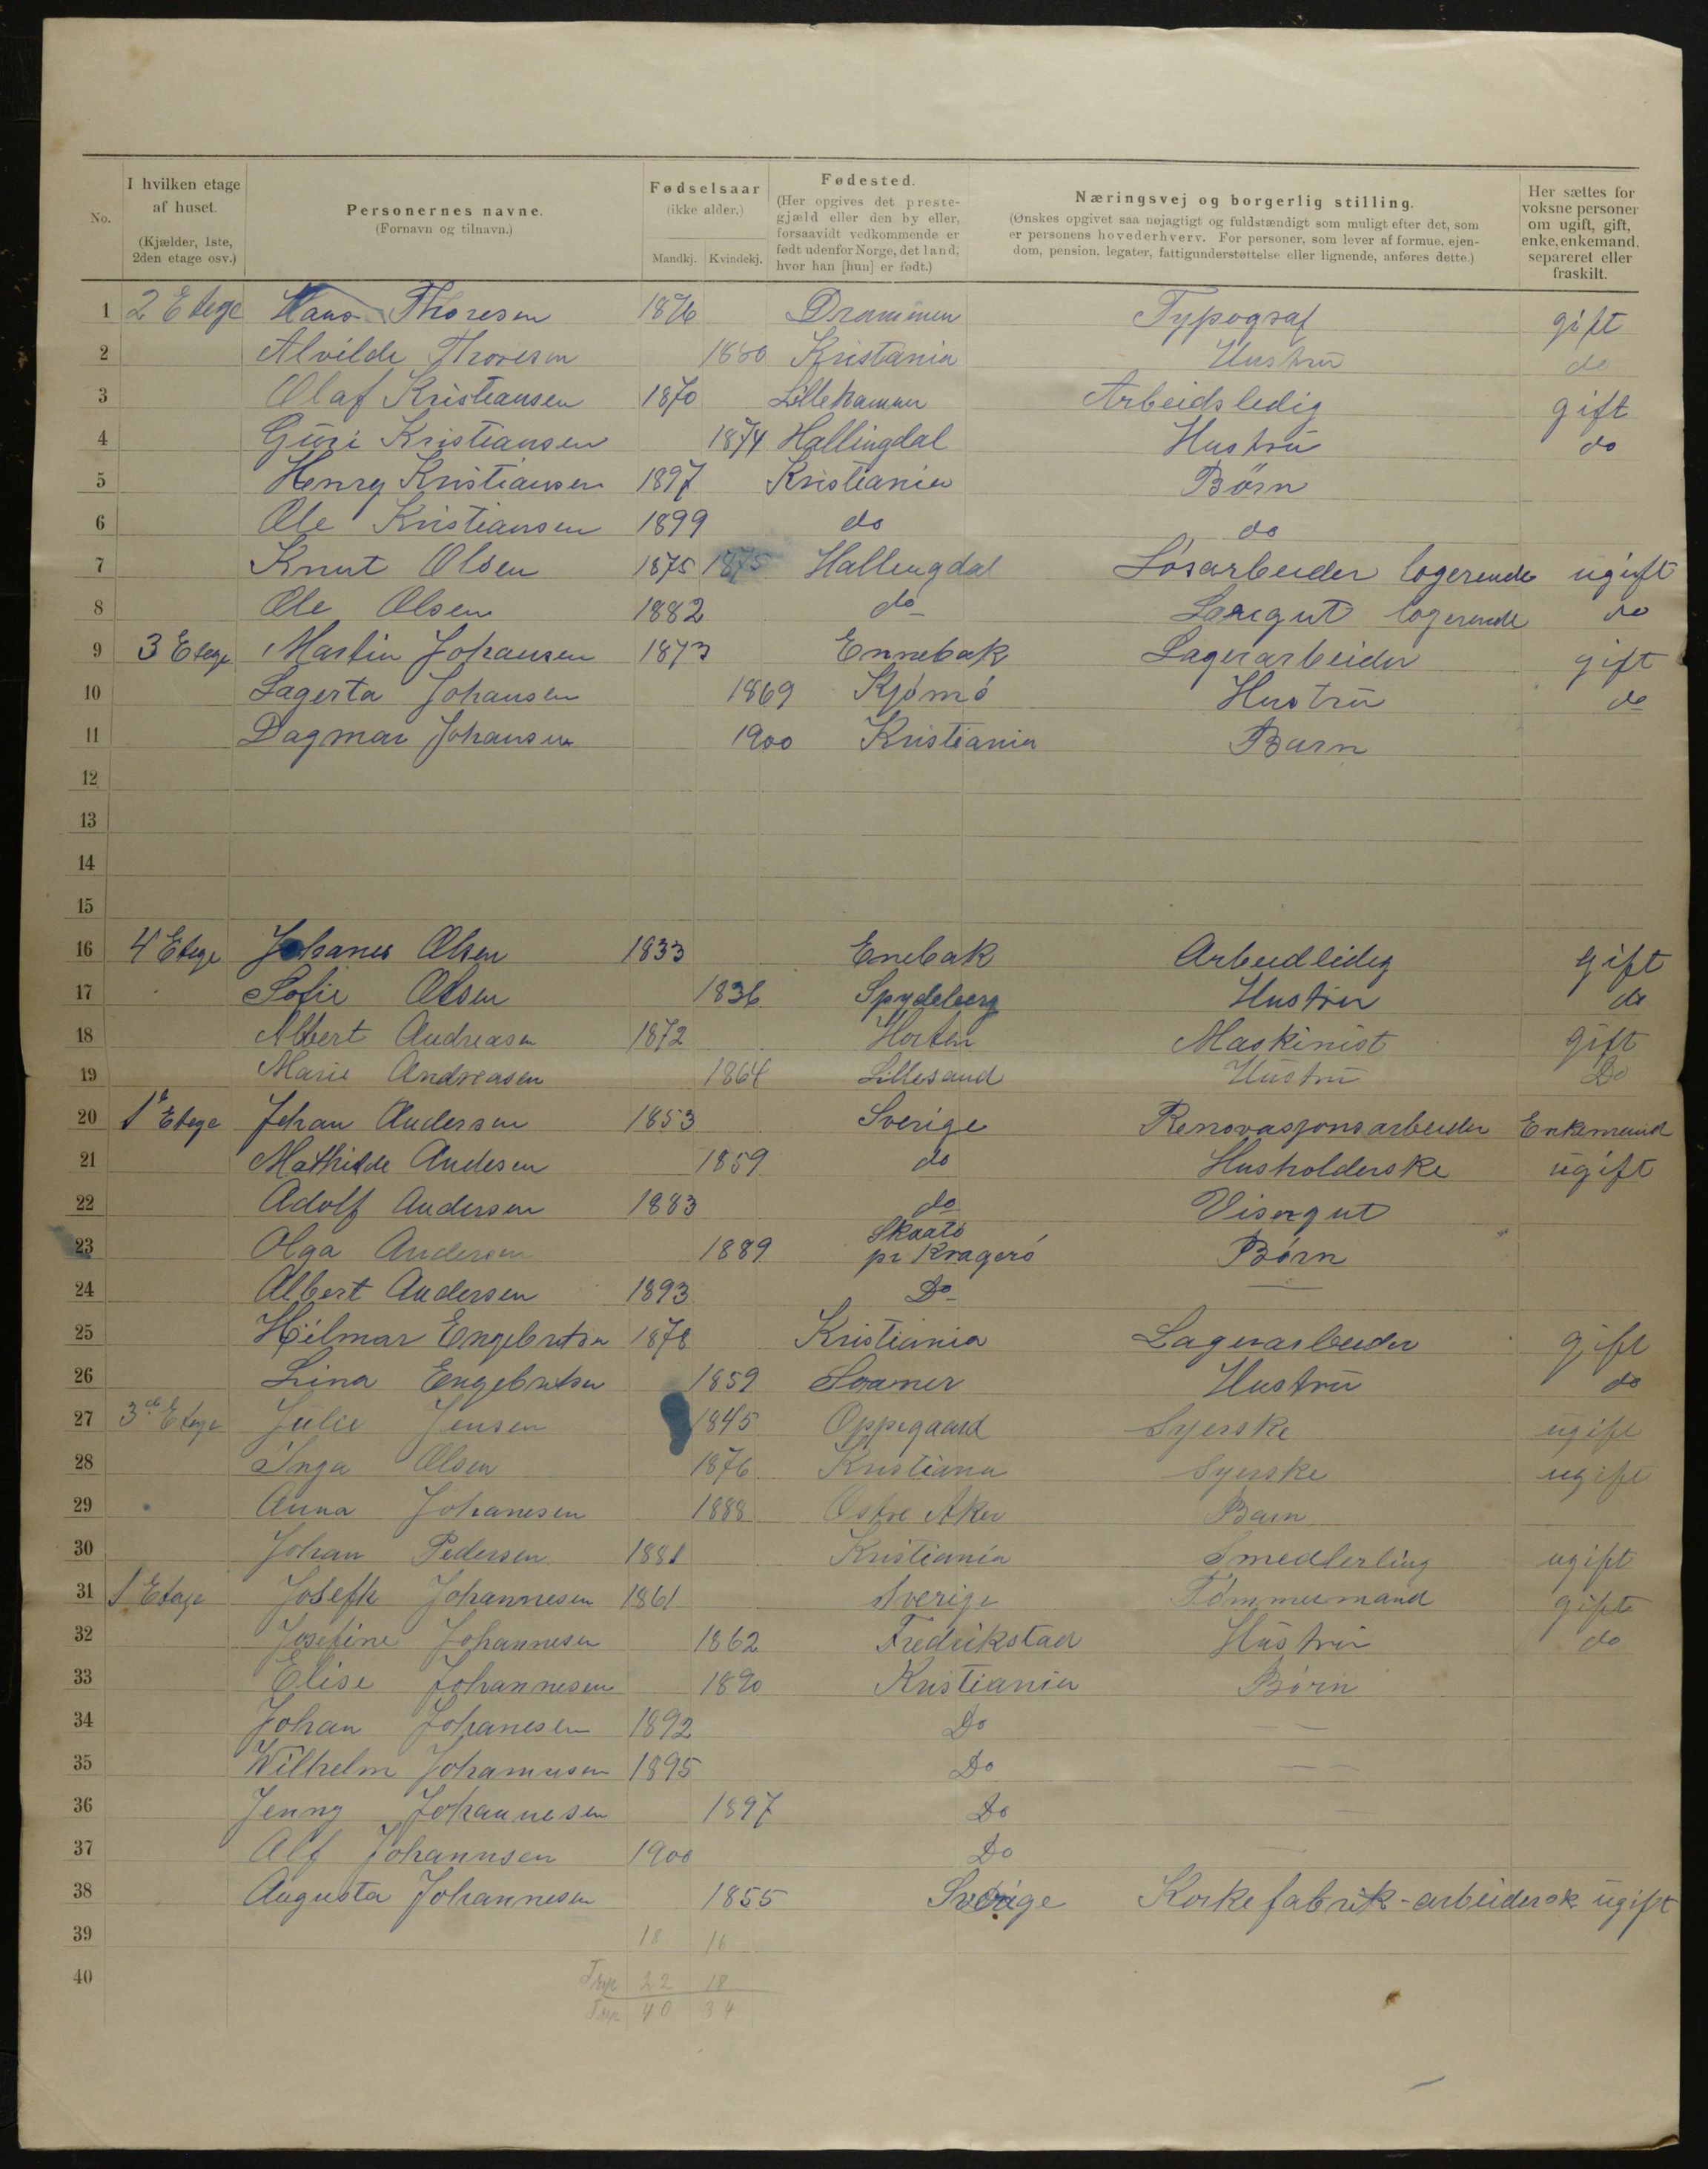 No.
I hvilken etage
af huset.
(Kjælder, 1ste,
2den etage osv.)
Personernes navne.
(Fornavn og tilnavn.)
Fødselsaar
(ikke alder.)
Mandkj. Kvindekj.
Fødested.
(Her opgives det preste-
gjæld eller den by eller,
forsaavidt vedkommende er
født udenfor Norge, det land,
hvor han [hun] er født.)
Næringsvej og borgerlig stilling.
(Ønskes opgivet saa nøjagtigt og fuldstændigt som muligt efter det, som
er personens hovederhverv. For personer, som lever af formue, ejen-
dom, pension, legater, fattigunderstøttelse eller lignende, anføres dette.)
Her sættes for
voksne personer
om ugift, gift,
enke, enkemand,
separeret eller
fraskilt.
1 2 Etege Hans Thoresen 1876 Drammen Typograf gift
2 Alvilde Thoresen 1880 Kristania Hustru do
3 Olaf Kristiansen 1870 Lillehammer Arbeidsledig gift
4 Guri Kristiansen 1874 Hallingdal Hustru do
5 Henry Kristiansen 1897 Kristiania Børn
6 Ole Kristiansen 1899 do do
7 Knut Olsen 1875 1875 Hallingdal Løsarbeider logerende ugift
8 Ole Olsen 1882 do logerende do
9 3 Etege Martin Johansen 1873 Ennebak Lagerarbeider gift
10 Lagerta Johansen 1869 Kjømø Hustru do
11 Dagmar Johansen 1900 Kristiania Barn
12
13
14
15
16 4 Etege Johanes Olsen 1833 Enebak Arbeidledig gift
17 Sofie Olsen 1836 Spydeberg Hustru do
18 Albert Andreasen 1872 Horten Maskinist gift
19 Marie Andreasen 1864 Lillesand Hustru Do
20 1e Etege Johan Andersen 1853 Sverige Renovasjonsarbeider Enkemand
21 Mathilde Andesen 1859 do Husholderske ugift
22 Adolf Andersen 1883 do Visergut
23 Olga Andersen 1889 Skaatø
pr Kragerø Børn
24 Albert Andersen 1893 Do —
25 Hilmar Engebretsen 1878 Kristiania Lagerarbeider gift
26 Lina Engebretsen 1859 Soaner Hustru do
27 3de Etege Julie Jensen 1845 Oppegaard Syerske ugift
28 Inga Olsen 1876 Kristiana Syerske ugift
29 Anna Johanesen 1888 Østre Aker Barn
30 Johan Pedersen 1881 Kristiania Smedlerling ugift
31 1 Etage Josefh Johannesen 1861 Sverige Tømmermand gift
32 Josefine Johannesen 1862 Fredrikstad Hustru do
33 Elise Johannesen 1890 Kristiania Børn
34 Johan Johanesen 1892 Do — —
35 Wilhelm Johannesen 1895 Do — —
36 Jenny Johannesen 1897 Do —
37 Alf Johannsen 1900 Do
38 Augusta Johannesen 1855 Sverige Korkefabrik-arbeiderske ugift
39 18 16
40 22 18
40 34